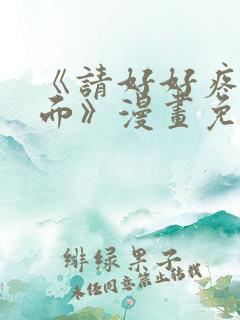 《請好好疼
而》漫畫免
緋绿果子
未经同意禁止转载